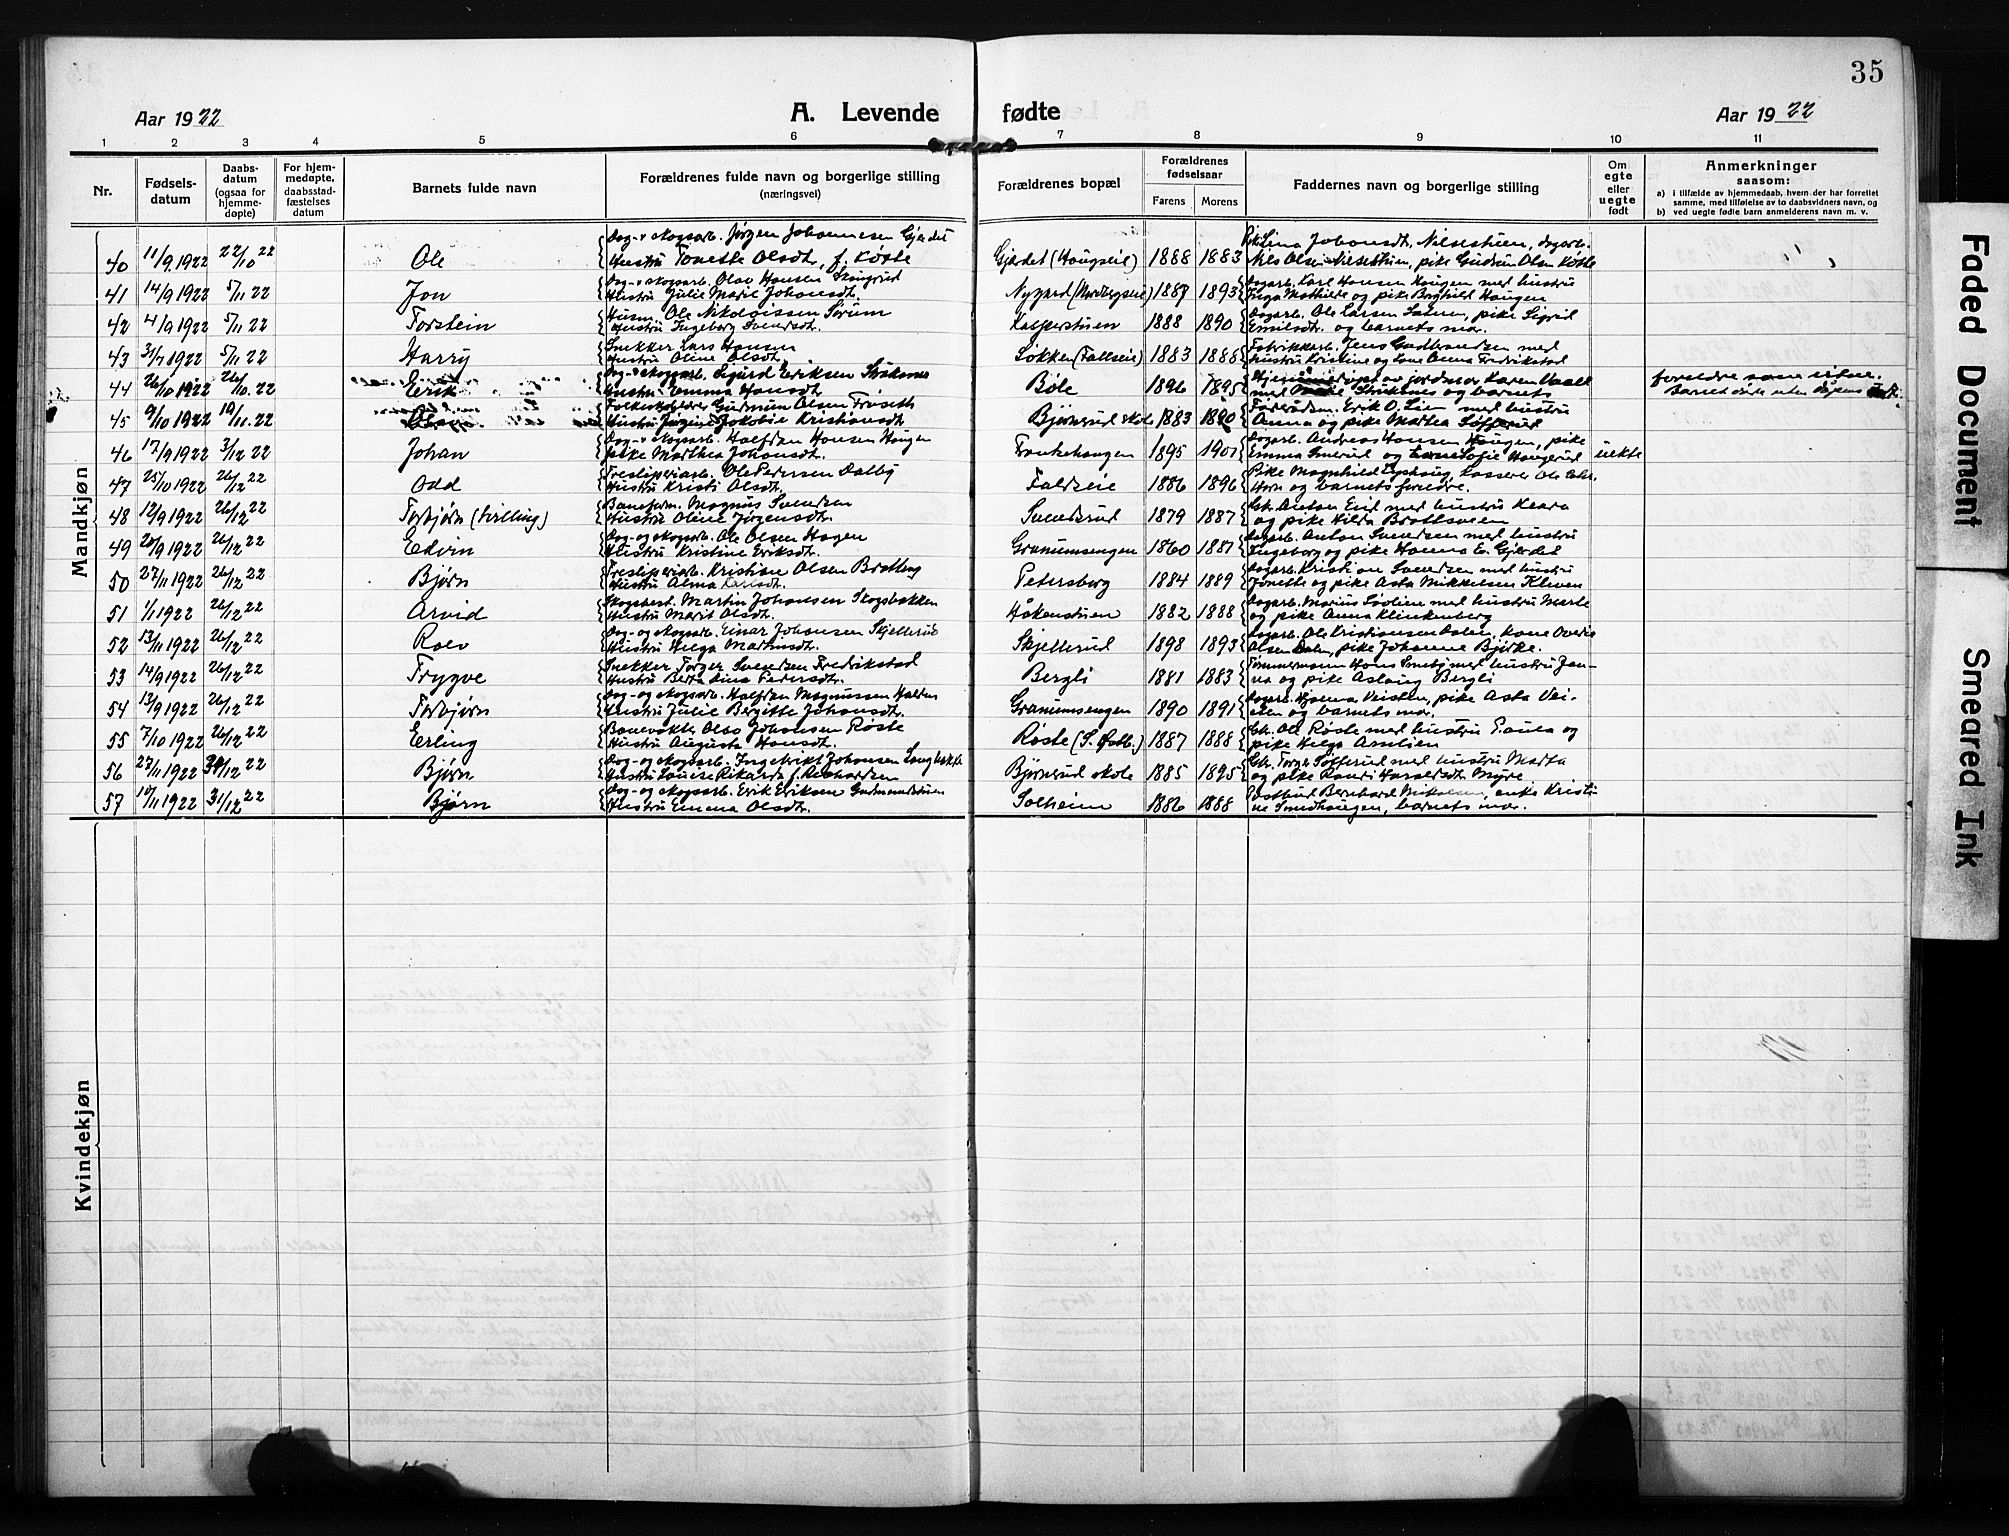 35
Aar 1922
A. Levende fødte
Aar 1922
1 2 3 4 5 6 7 8 9 10 11
Nr.
Fødsels-
datum
Daabs-
datum
(ogsaa for
hjemme-
døpte)
For hjem-
medøpte,
daabsstad-
fæstelses
datum
Barnets fulde navn
Forældrenes fulde navn og borgerlige stilling
(næringsvei)
Forældrenes bopæl
Forældrenes
fødselsaar
Farens Morens
Faddernes navn og borgerlig stilling
Om
egte
eller
uegte
født
Anmerkninger
saasom:
a) i tilfælde av hjemmedaab, hvem der har forrettet
samme, med tilføielse av to daabsvidners navn, og
b) ved uegte fødte barn anmelderens navn m. v.
Mandkjøn
Dag- v skogsarb. Jørgen Johannesen Gjerdet Pike Lina Johansdt., Nilsestuen, dagarb.
40 11/9 1922 22/10 22 Ole Hustru Tonette Olsdt., f. Køste Gjerdet (Haugseie) 1888 1883 Nils Olsen Nilsestuen, pike Gudrun Olsn Køste
Dag- v skogsarb. Olav Hansen Skugrud Dagarb. Karl Hansen Haugen med hustru
41 14/9 1922 5/11 22 Jon Hustru Julie Marie Johansdt. Nygard 1887 1893 Inga Mathilde og pike Borghild Haugen
Husm. Ole Nikolaissen Sørum Dagarb. Ole Larsen pike Sigrid
42 4/9 1922 5/11 22 Torstein Hustru Ingeborg Svendsdt. Kasperstuen 1888 1890 Emilsdt. og barnets mor.
Snekker Lars Hansen Fabrikkarb. Jens Gudbrandsen med
43 31/7 1922 5/11 22 Harry Hustru Oline Olsdt. Søkken (Fallseie) 1883 1888 hustru Kristine og kone Anna Fredrikstad
Dag- v skogsarb. Sigurd Eriksen av jordmor Karen foreldre som
44 26/10 1922 26/10 22 Erik Hustru Emma Hansdt. Bøle 1896 1895 med og barnets Barnet døde uten
Gudmund Olsen Frøseth Erik O. Lien med hustru
45 9/10 1922 19/11 22 Hustru Jakobie Kristiansdt. Bjørnerud skole 1883 1890 Anna og pike Martea Søfferud
Dag- v skogsarb. Halfdan Hansen Haugen Dagarb. Andreas Hansen Haugen, pike
46 17/9 1922 3/12 22 Johan pike Marthea Johansdt. 1895 1901 Emma Smerud og Sofie Haugerud uekte
Tresliperiarb. Ole Pedersen Dalby Pike Magnhild Lyshaug, kasserer Ole Chr.
47 25/10 1922 26/12 22 Odd Hustru Kristi Olsdt. Faldseie 1886 1896 Horn og barnets foreldre.
Baneform. Magnus Svendsen Gbr. Anton Eid med hustru Klara
48 12/9 1922 26/12 22 Torbjørn (tvilling) Hustru Oline Jørgensdt. Svendsrud 1879 1887 og pike Hilda Brattsveen
Dag- og skogsarb. Ole Olsen Hagen Dagarb. Anton Svendsen med hustru
49 20/9 1922 26/12 22 Edvin Hustru Kristine Eriksdt. Granumsengen 1860 1881 Ingeborg og pike Hanna E. Gjerdet
Tresliperiarb. Kristian Olsen Bratberg Dagarb. Kristian Svendsen med hustru
50 27/11 1922 26/12 22 Bjørn Hustru Alma Larsdt. Petersborg 1884 1889 Jonette og pike Asta Mikkelsen Kleven
Skogbest. Martin Johansen Skogsbakken Dagarb. Marius Søolien med hustru Marte
51 1/11 1922 26/12 22 Arvid Hustru Marit Olsdt. Håkenstuen 1882 1888 og pike Anna Klinkenberg
Dag- og skogsarb. Einar Johansen Skjellerud Dagarb. Ole Kristiansen Dalen, kone
52 13/11 1922 26/12 22 Rolv Hustru Helga Martinsdt. Skjellerud 1898 1893 Olsen Dalen, pike Johanne Bjørke.
Snekker Torger Svendsen Fredrikstad Tømmermann Hans med hustru Jan-
53 14/9 1922 26/12 22 Trygve Hustru Berta Lina Pedersdt. Bergli 1881 1883 na og pike Aslaug Bergli
Dag- og skogsarb. Halfdan Magnussen Dagarb. Hjalmar Veisten, pike Asta Vei-
54 13/9 1922 26/12 22 Torbjørn Hustru Julie Bergitte Johansdt. Granumsengen 1890 1891 sten og barnets mor.
Banevokter Olav Johansen Røste Gbr. Ole Røste med hustru Paula og
55 7/10 1922 26/12 22 Erling Hustru Augusta Hansdt. Røste 1887 1888 pike Helga Amlien
Dag- og skogsarb. Ingebrikt Johansen Gbr. Torger Søfferud med hustru Marta
56 27/11 1922 31/12 22 Bjørn Hustru Louise Rikarda f. Bjørnerud skole 1885 1895 og pike Randi Haraldsdt. Myre
Dag- og skogsarb. Erik Eriksen Gudmundstuen Postbud Bernhard Mikalsen, enke Kristi-
57 10/11 1922 31/12 22 Bjørn Hustru Emma Olsdt. Solheim 1886 1888 ne Smedhaugen, barnets mor.
Kvindekjøn
Faded Document
Smeared Ink